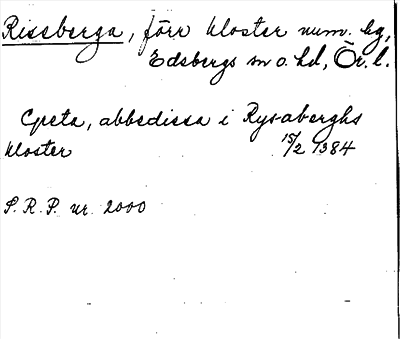 Rissberga, förr kloster num. kg,
Edsbergs sn o. hd, Ör. l.
Cpeta, abbedissa i Rysaberghs
kloster 15/2 1384
S. R. P. nr. 2000